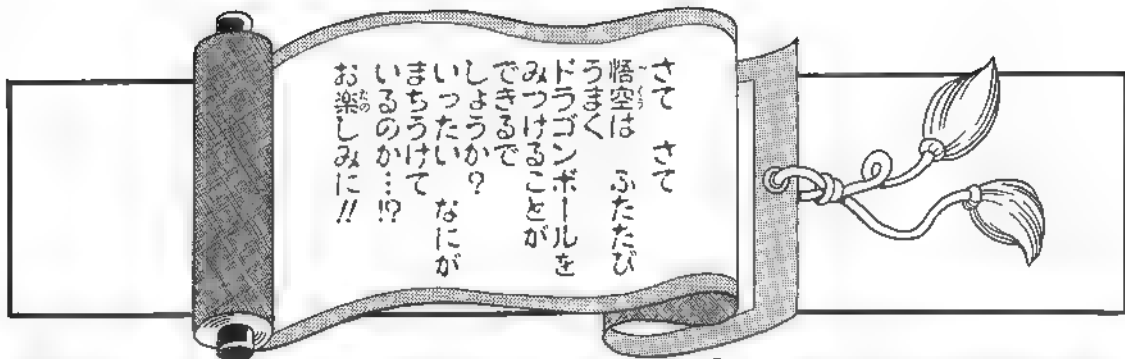 さて さて
悟空は ふたたび
うまく
ドラゴンボールを
みつけることが
できるで
しょうか?
いったい なにが
まちうけて
いるのか…!?
お楽しみに!!